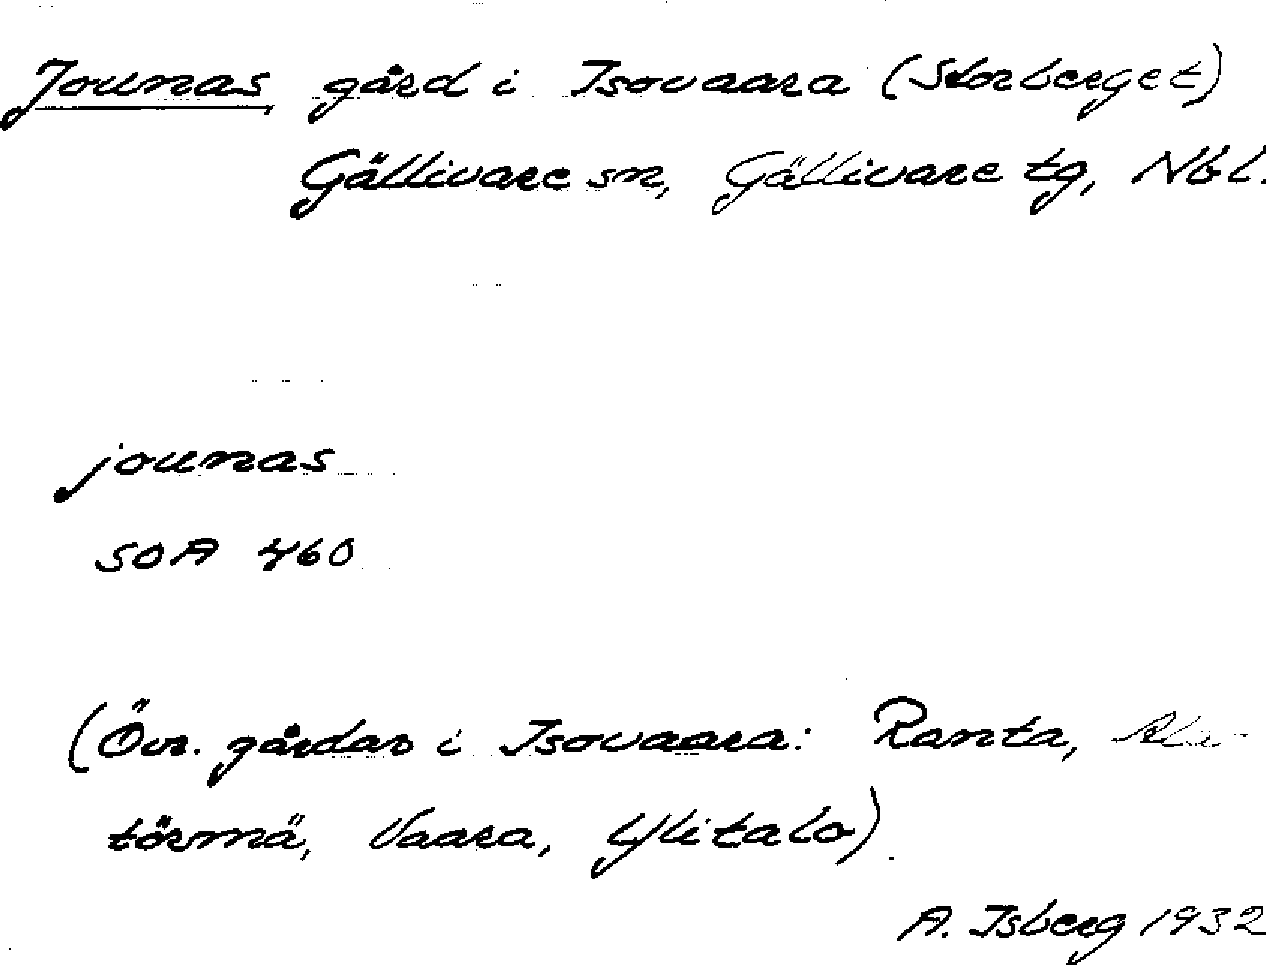 Jounas gård i Isovaara (Storberget)
Gällivare sn, Gällivare tg, Nbl.
jounas
SOA 460
(Övr. gårdar i Isovaara: Ranta, Ala-
törmä, Vaara, Ylitalo).
A. Isberg 1932